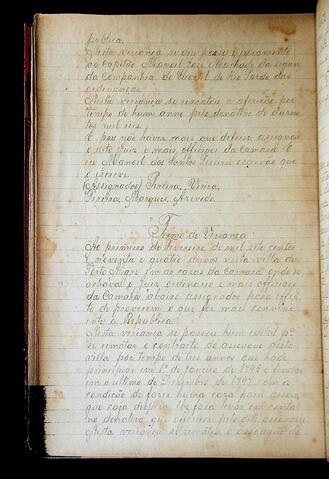 publica.
Nesta veriança se deu posse e juramento
ao Capitão Manoel José Machado da segun
da Companhia do Quartel do Rio Pardo das
ordenanças.
Nesta veriança se rematou a afrição por
tempo de hum anno pelo donativo de
tos mil reis.
E por não haver mais que deferir assignou
o dito Juiz e mais officiaes da Camara E
eu Manoel dos Santos escrivão que
o escrevi
(Assignados) Pereira, Vieira,
Pereira, Marques, Azevedo.
Termo de Veriança.
Ao primeiro de Fevereiro de mil sete centos
e noventa e quatro annos nesta villa de
Porto Alegre em as cazas da Camara onde se
achava o Juiz ordinario e mais officiaes
da Camara abaixo assignados para effei
to de proverem o que for mais conveni
ente á Republica.
Nesta veriança se passou hum edital pª
se rematar o contracto do açougue desta
villa por tempo de tres annos que hade
principiar em 1º de Janeiro de 1795 e findar
em o ultimo de Dezembro de 1797 com a
condição de fazer huma caza para açou
gue cuja despeza lhe sera levada em conta
no donativo que offerecer pelo dito açougue
Nesta veriança se rematou o açougue do